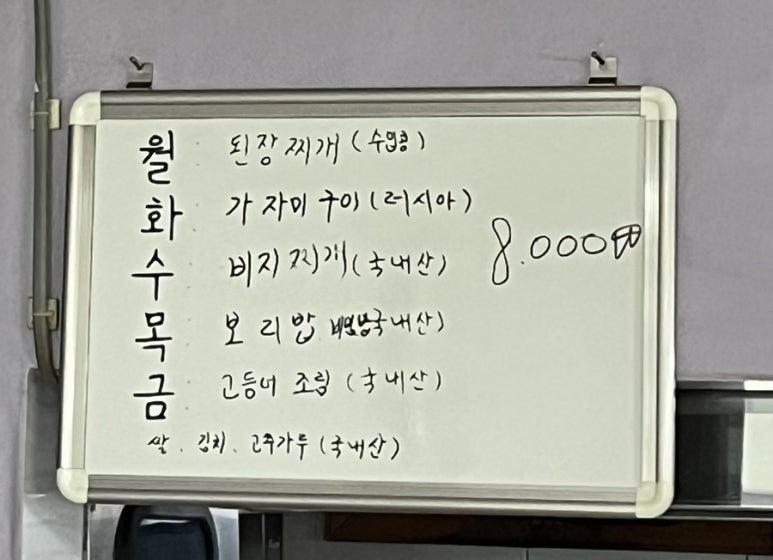 월 된장찌개 (수입콩)
화 가자미구이 (러시아)
수 비지찌개 (국내산)
8.000
목 보리밥 국내산)
금 고등어 조림 (국내산)
쌀. 김치. 고추가루 (국내산)